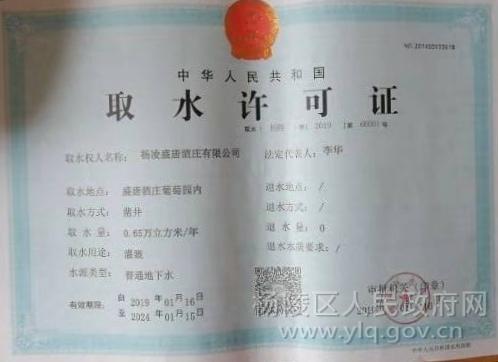 中华人民共和国
取水许可证
取水权人名称：杨凌盛唐酒庄有限公司 法定代表人：李华
取水地点：盛唐酒庄葡萄园内 退水地点：/
取水方式：凿井 退水方式：/
取水量：0.65万立方米/年 退水量：0
取水用途：灌溉 退水水质要求：/
水源类型：普通地下水
审批机关（印章）
有效期限：自 2019 年 01月 16日
至 2024 年 01月 15日
杨陵区人民政府网
www.ylq.gov.cn